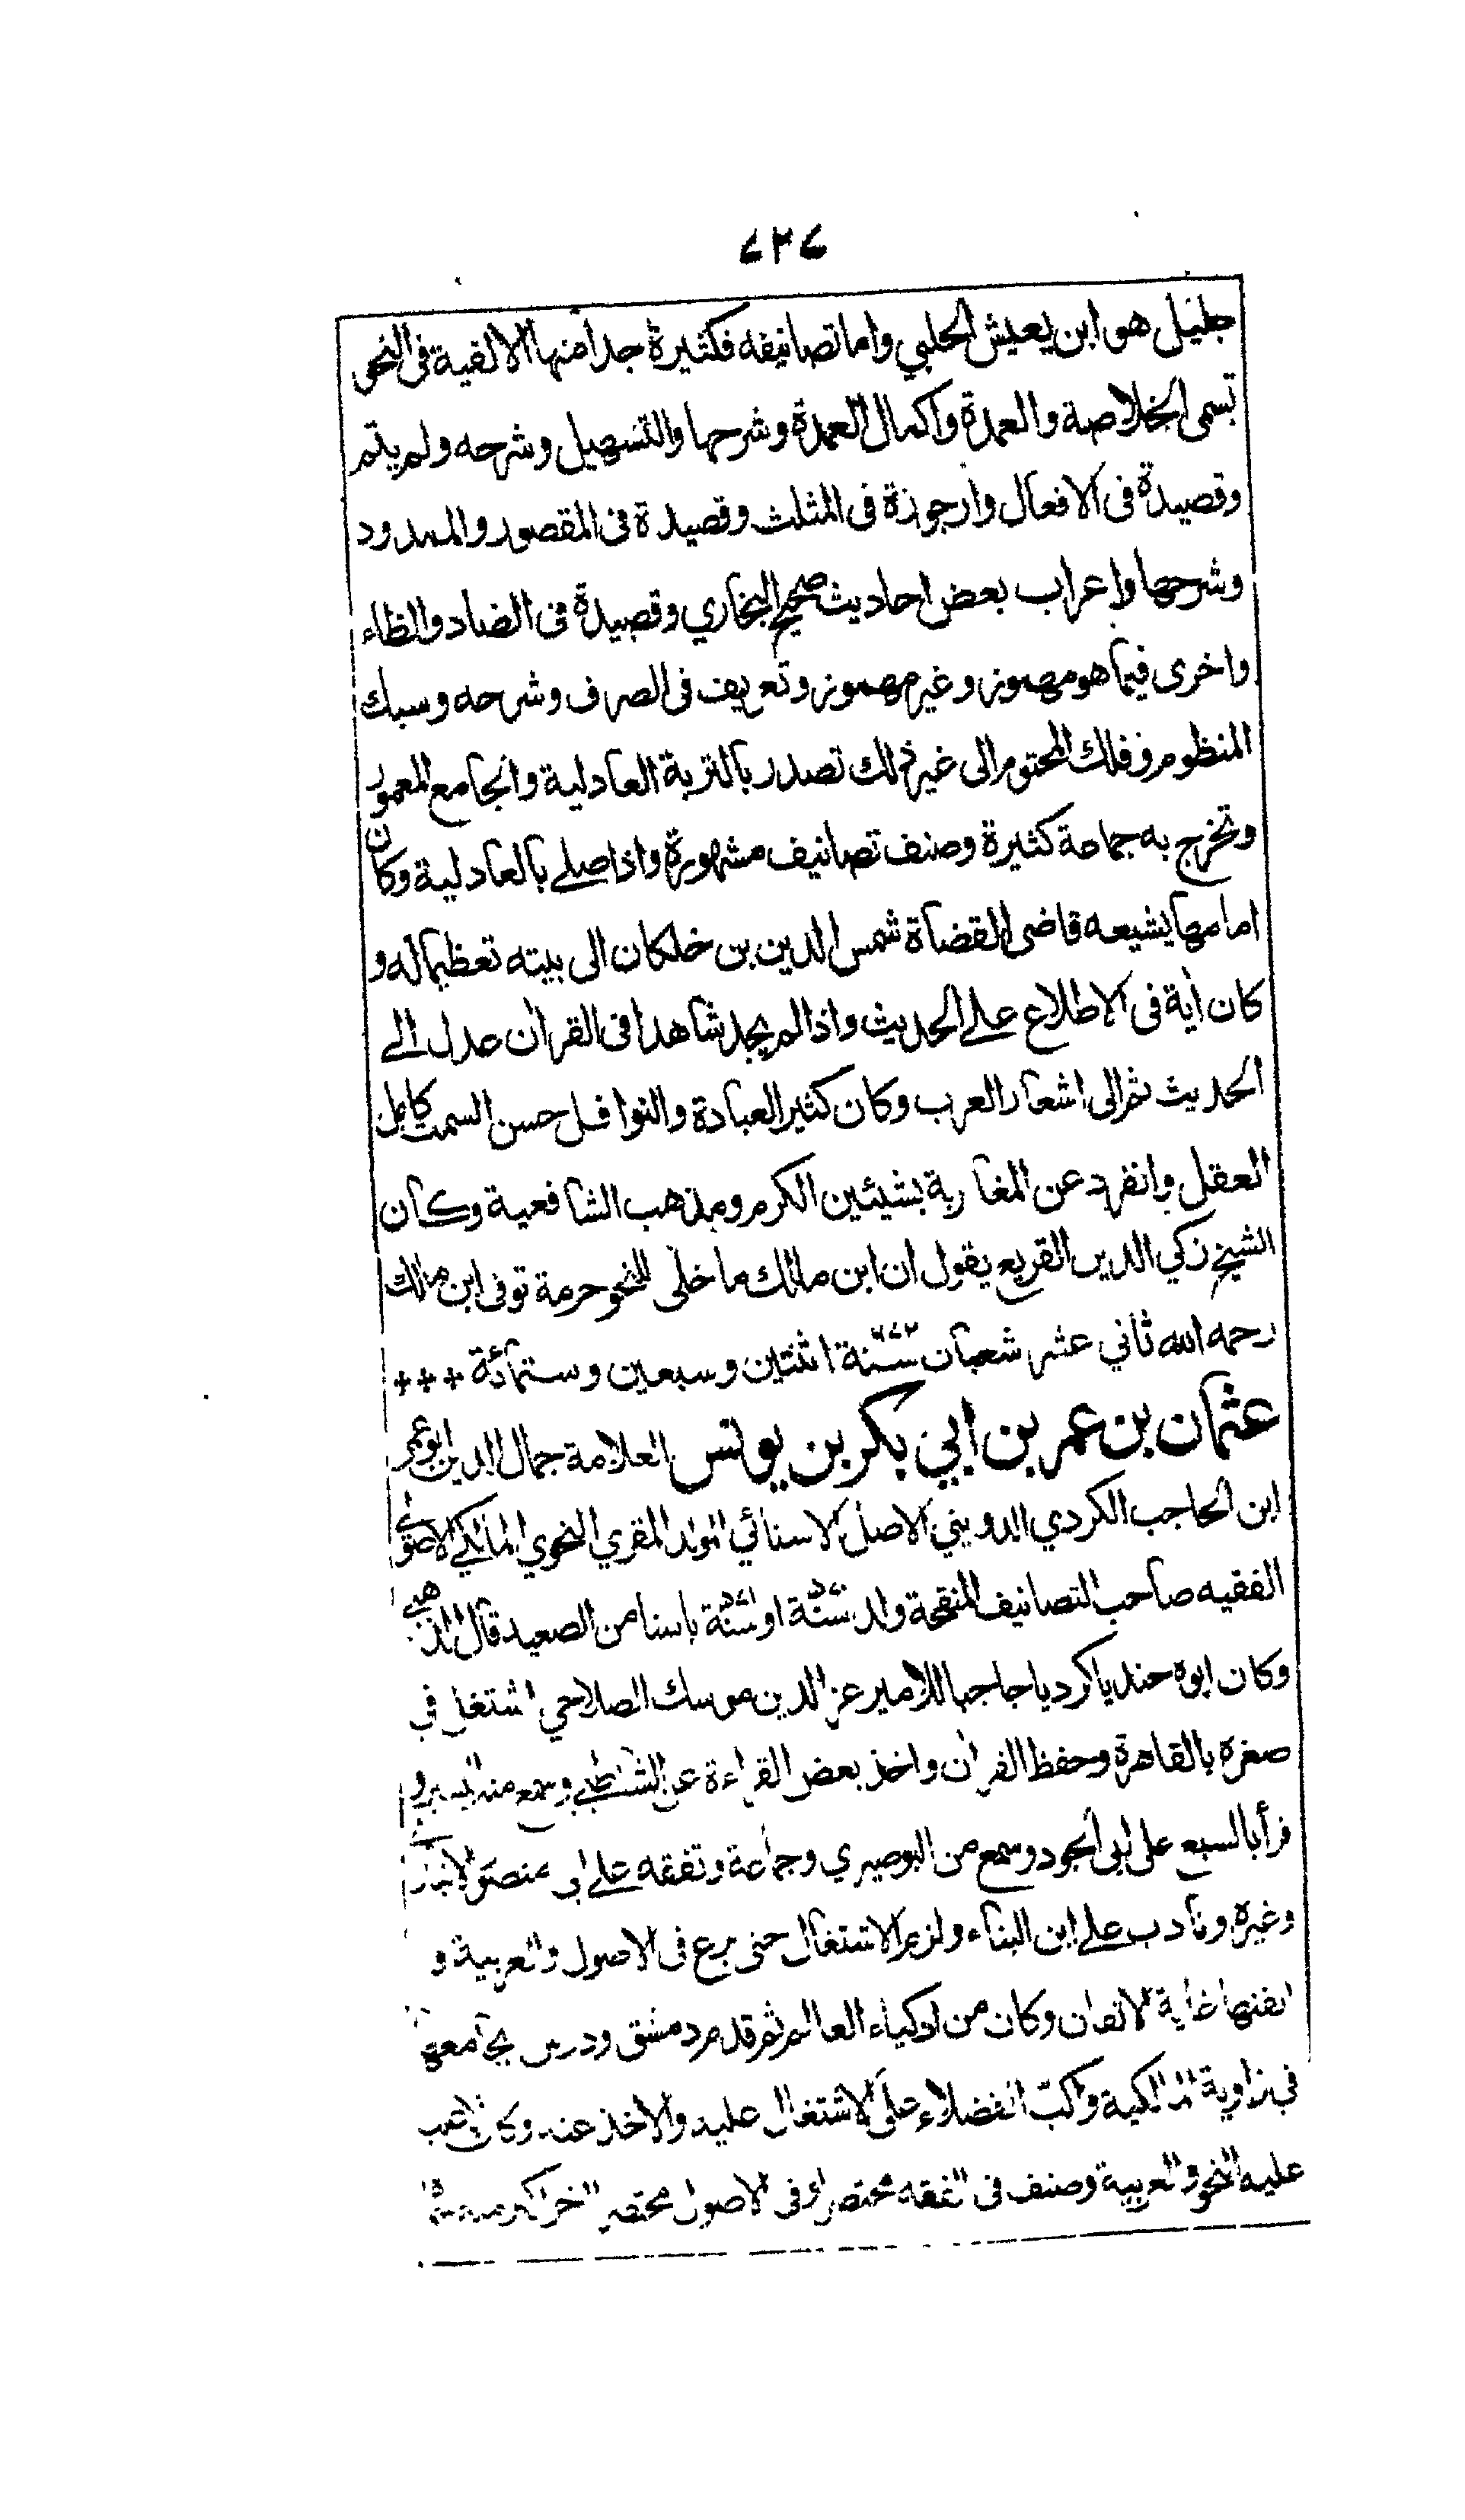 ٧٢٧
جليل هو ابن يعيش الحلبي واما تصانيفه فكثيرة جدا منها الالفية فى النحو
تسمى الخلاصة والعمدة واكمال العمدة وشرحها والتسهيل وشرحه ولم يتم
وقصيدة فى الافعال وارجوزة فى المثلث وقصيدة فى المقصور والممدود
وشرحها واعراب بعض احاديث صحيح البخاري وقصيدة فى الضاد والظاء
واخرى فيما هو مهموز وغير مهموز وتعريف فى الصرف وشرحه وسبك
المنظوم وفلك المختوم الى غير ذلك تصدر بالتربة العادلية والجامع المعمور
وتخرج به جماعة كثيرة وصنف تصانيف مشهورة واذا صلى بالعادلية وكان
امامها يشيعه قاضى القضاة شمس الدين بن خلكان الى بيته تعظيما له و
كان أية فى الاطلاع على الحديث واذا لم يجد شاهدا فى القران عدل الى
الحديث ثم الى اشعار العرب وكان كثير العبادة والنوافل حسن السمت كامل
العقل وانفرد عن المغاربة بشيئين الكرم ومذهب الشافعية وكان
الشيخ زكي الدين القريع يقول ان ابن مالك ما خلى للنحو حرمة توفى ابن مالك
رحمه الله ثاني عشر شعبان سنة ٦٧٢ اثنتين وسبعين وستمائة + + +
عثمان بن عمر بن ابي بكر بن يونس العلامة جمال الدين ابو عمر
ابن الحاجب الكردي الدويني الاصل الاسنائي المولد المقري النحوي المالكي الاصولي
الفقيه صاحب التصانيف المنقحة ولد سنة او سنة باسنا من الصعيد قال الذهبي
وكان ابوه جنديا كرديا حاجبا للامير عز الدين موسك الصلاحي اشتغل في
صغره بالقاهرة وحفظ القران واخذ بعض القراءة عن الشاطبي وسمع منه التيسير و
قرأ بالسبع على ابى الجود وسمع من البوصيري وجماعة وتفقه على ابى منصور الابياري
وغيره وتادب على ابن البناء ولزم الاشتغال حتى برع فى الاصول والعربية و
اتقنها غاية الاتقان وكان من اذكياء العالم ثم قدم دمشق ودرس بجامعها
في زاوية المالكية واكب الفضلاء على الاشتغال عليه والاخذ عنه وكان الاغلب
عليه النحو والعربية وصنف فى الفقه مختصرا وفى الاصول مختصرا اخر اكبر منه